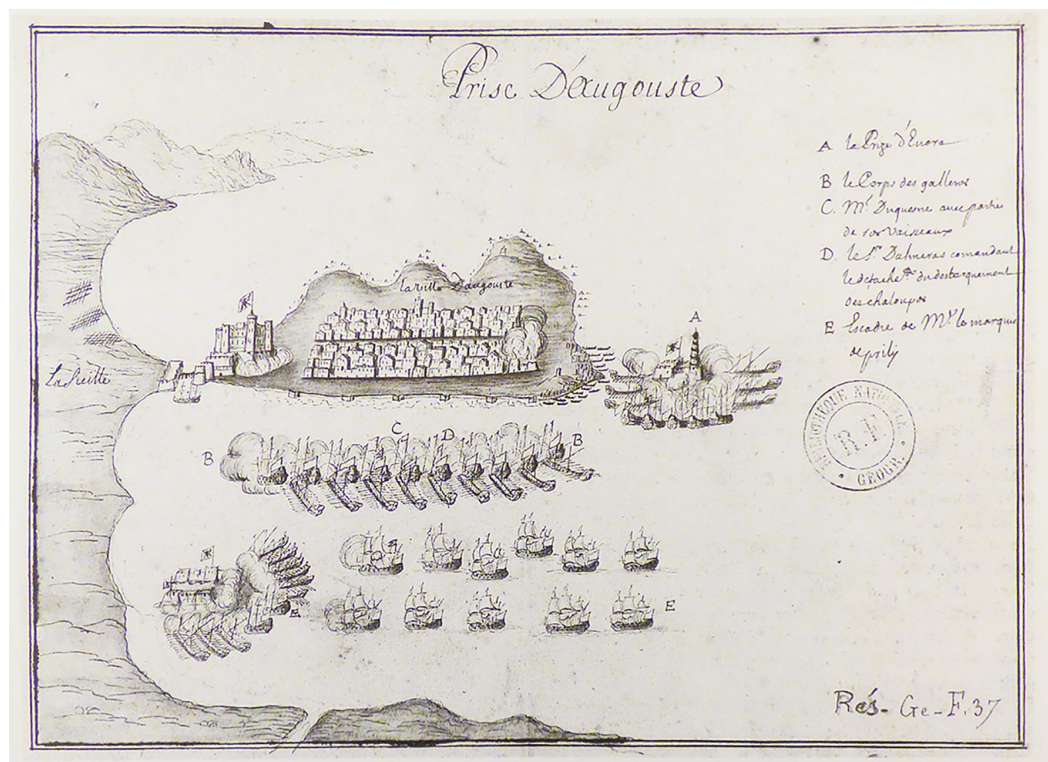 Prise D'Augouste
A la Prize d'Euora
B le Corps des galleres
C. Mr Duquesne avec partie
de ses Vaisseaux
D. le Sr. Dalmeras comandant
le détache du debarquement
des chaloupes
E Escadre de Mr le marquis
de prilj
la ville D'augouste
A
C
D
B
B
E
E
BIBLIOTHEQUE NATIONALE
GEOGR.
Rés- Ge-F.37